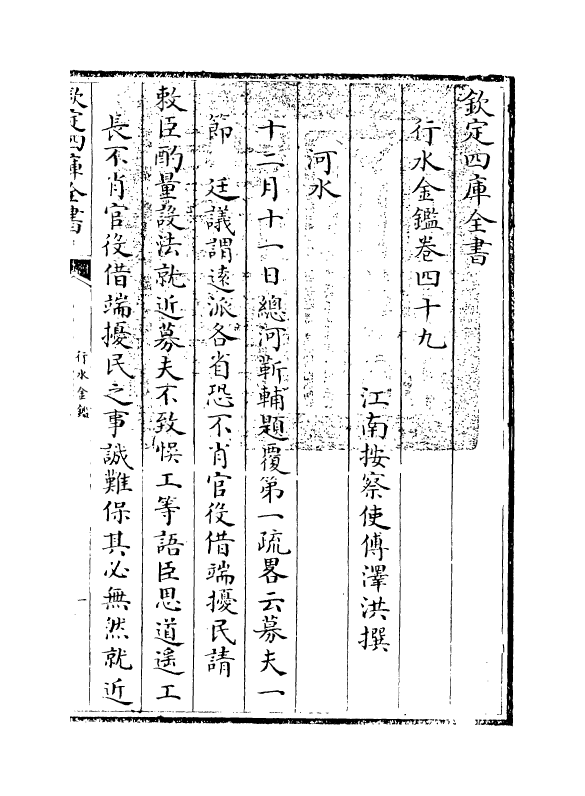 欽定四庫全書
行水金鑑卷四十九
江南按察使傅澤洪撰
河水
十二月十一日總河靳輔題覆第一疏畧云募夫一
節　廷議謂遠派各省恐不肖官役借端擾民請
敕臣酌量設法就近募夫不致悞工等語臣思道遥工
長不肖官役借端擾民之事誠難保其必無然就近
欽定四庫全書
行水金鑑
一